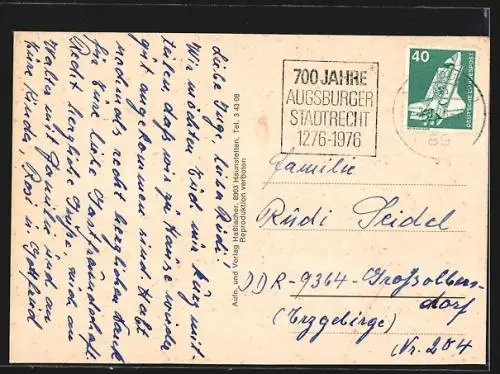 Liebe Inge, lieber Rudi!
Wir möchten Euch nur kurz mit-
teilen, daß wir zu Hause wieder
gut angekommen sind. Habt
nochmals recht herzlichen Dank
für Eure liebe Gastfreundschaft.
Recht herzliche Grüße auch an
Walter mit Familie und an
Eure Kinder, Rosi u. Gottfried
Aufn. und Verlag Haßlacher, 8903 Haunstetten, Tel. 3 43 06
Reproduktion verboten
700 JAHRE
AUGSBURGER
STADTRECHT
1276-1976
40
DEUTSCHE BUNDESPOST
Familie
Rudi Seidel
DDR-9364-Großolbers-
dorf
(Erzgebirge)
Nr. 284